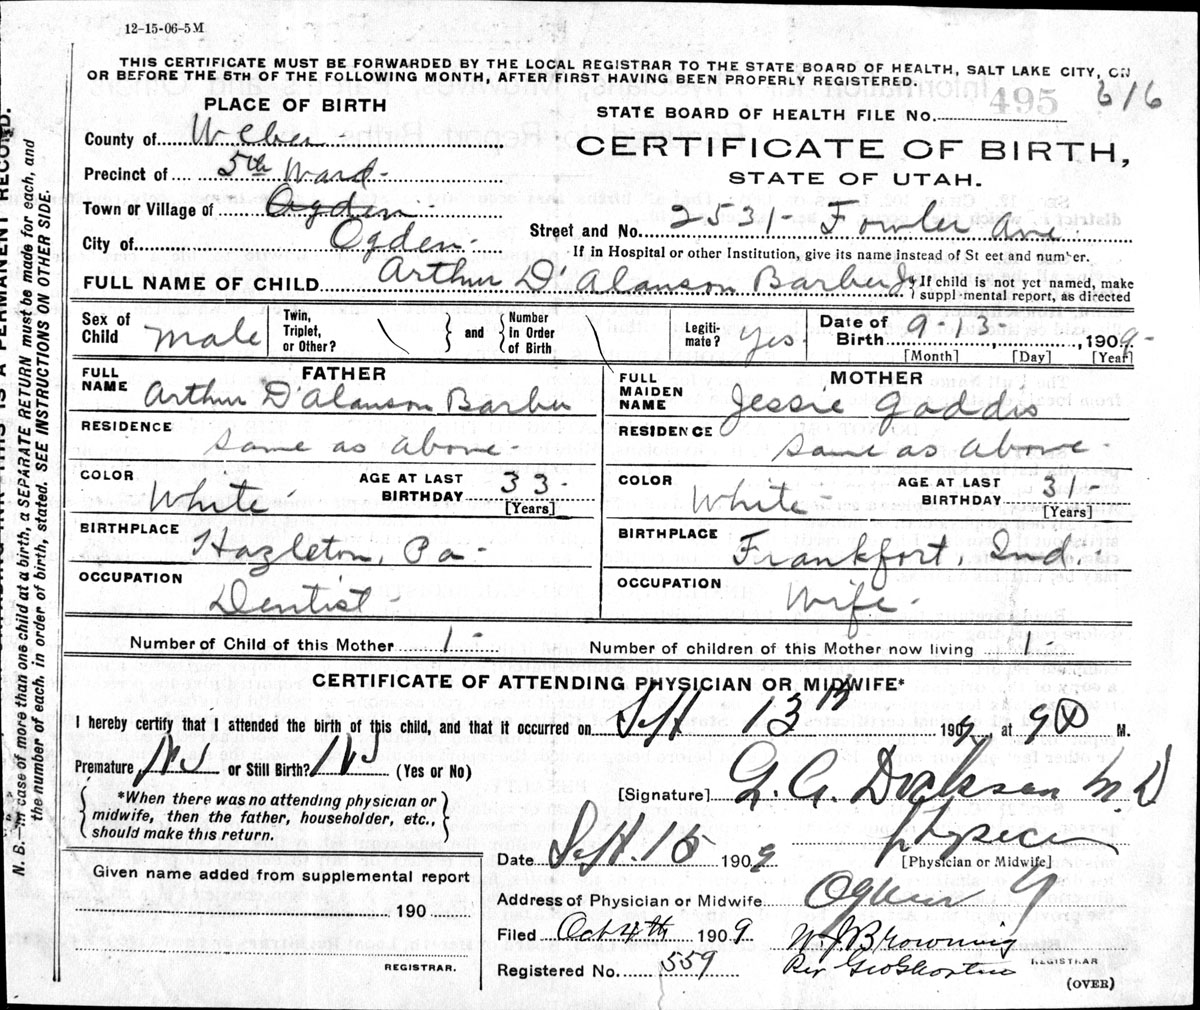 12-15-06-5M
THIS CERTIFICATE MUST BE FORWARDED BY THE LOCAL REGISTRAR TO THE STATE BOARD OF HEALTH, SALT LAKE CITY, ON
OR BEFORE THE 5TH OF THE FOLLOWING MONTH, AFTER FIRST HAVING BEEN PROPERLY REGISTERED.
495 616
PLACE OF BIRTH
STATE BOARD OF HEALTH FILE No.
County of Weber
CERTIFICATE OF BIRTH,
STATE OF UTAH.
Precinct of 5th Ward
Town or Village of Ogden
Street and No. 2531 Fowler Ave
City of Ogden
If in Hospital or other Institution, give its name instead of St eet and number.
FULL NAME OF CHILD Arthur D'Alanson Barber Jr
If child is not yet named, make
suppl-mental report, as directed
Sex of Child Male
Twin, Triplet, or Other?
and
Number in Order of Birth
Legiti-mate? Yes
Date of Birth 9-13-, 1909-
[Month] [Day] [Year]
FATHER
MOTHER
FULL NAME Arthur D'Alanson Barber
FULL MAIDEN NAME Jessie Gaddis
RESIDENCE Same as above
RESIDENCE Same as above
COLOR White
AGE AT LAST BIRTHDAY 33 [Years]
COLOR White
AGE AT LAST BIRTHDAY 31 [Years]
BIRTHPLACE Hazleton, Pa
BIRTHPLACE Frankfort, Ind.
OCCUPATION Dentist
OCCUPATION Wife
Number of Child of this Mother 1
Number of children of this Mother now living
CERTIFICATE OF ATTENDING PHYSICIAN OR MIDWIFE*
I hereby certify that I attended the birth of this child, and that it occurred on Sept 13th 1909, at M.
Premature No or Still Birth? No (Yes or No)
*When there was no attending physician or
midwife, then the father, householder, etc.,
should make this return.
[Signature] M.D
[Physician or Midwife]
Date Sept. 15 1909
Given name added from supplemental report
190
REGISTRAR.
Address of Physician or Midwife Ogden
Filed Oct 4th 1909 W. J. Browning
REGISTRAR
Registered No. 559
(OVER)
N. B.—In case of more than one child at a birth, a SEPARATE RETURN must be made for each, and
the number of each, in order of birth, stated. SEE INSTRUCTIONS ON OTHER SIDE.